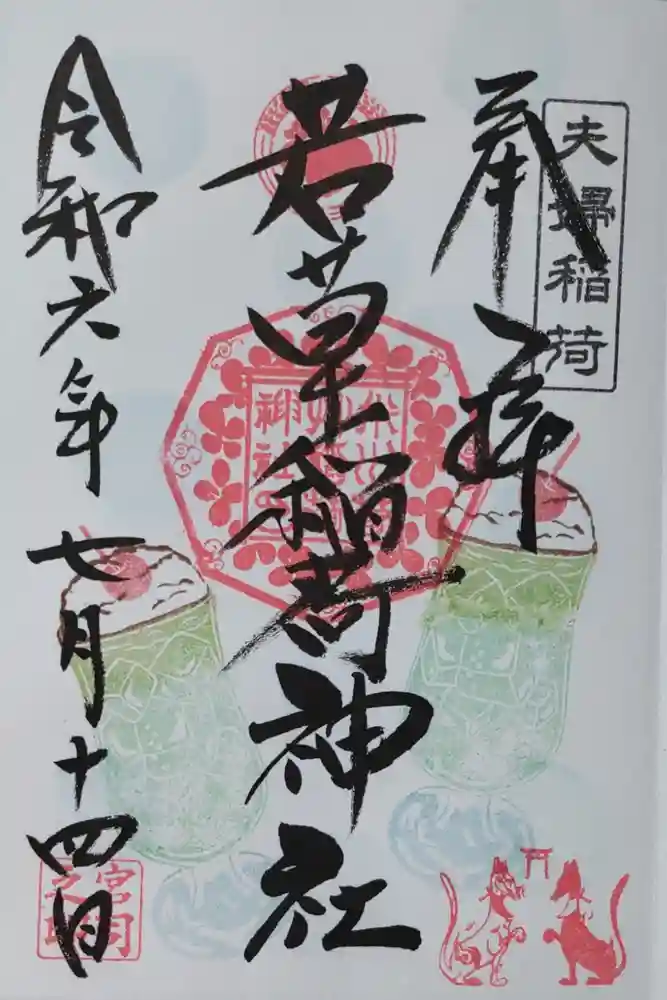 夫婦稲荷
奉拝
若草稲荷神社
令和六年七月十四日
宮司之印